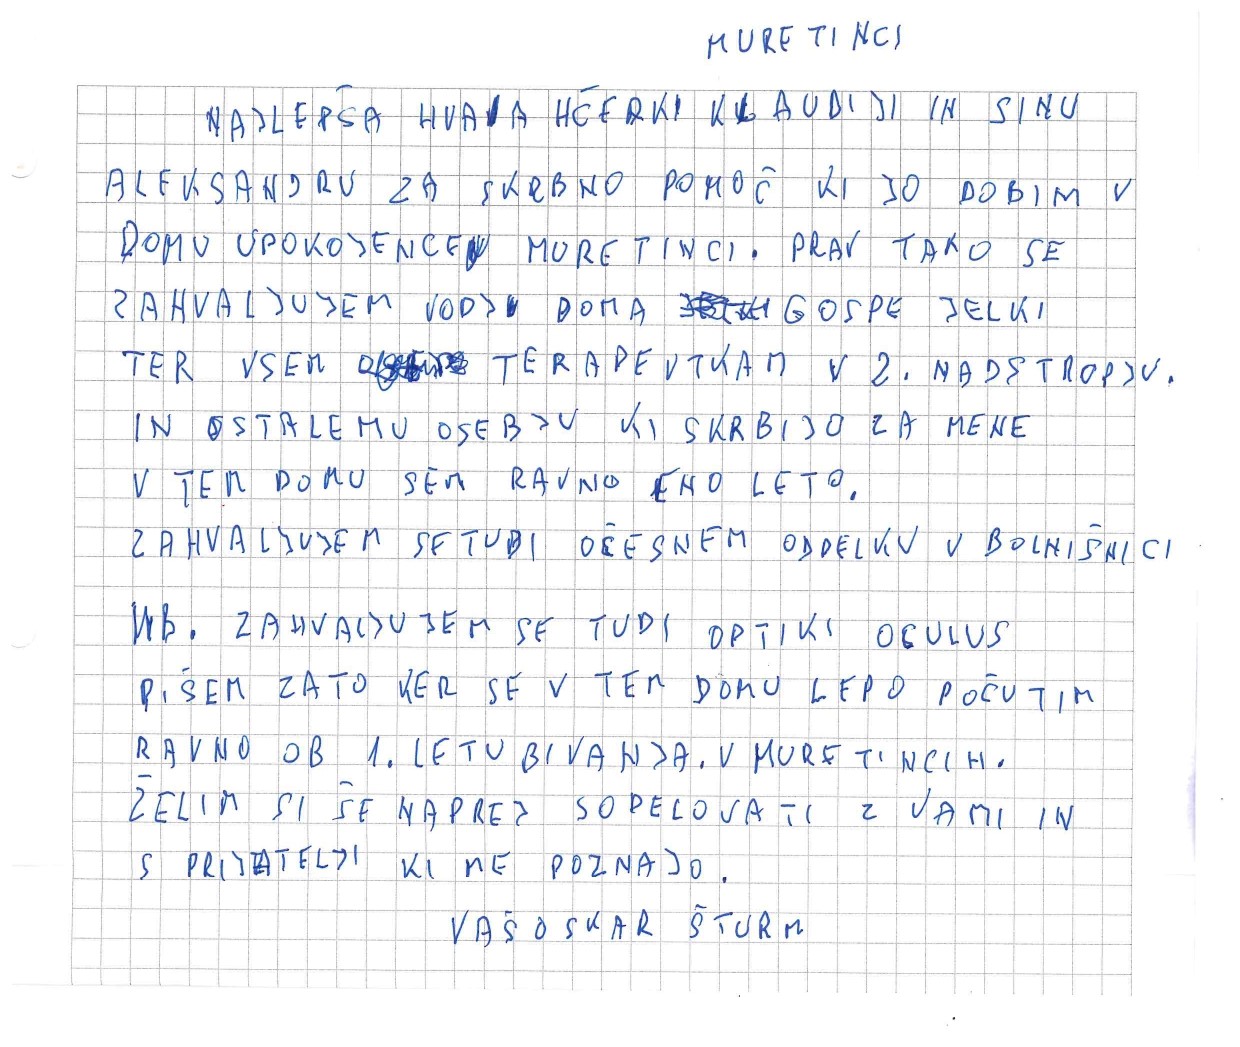 MURETINCI
NAJLEPŠA HVALA HČERKI KLAUDIJI IN SINU
ALEKSANDRU ZA SKRBNO POMOČ KI JO DOBIM V
DOMU UPOKOJENCEV MURETINCI. PRAV TAKO SE
ZAHVALJUJEM VODJI DOMA GOSPE JELKI
TER VSEM TERAPEVTKAM V 2. NADSTROPJU.
IN OSTALEMU OSEBJU KI SKRBIJO ZA MENE
V TEM DOMU SEM RAVNO ENO LETO.
ZAHVALJUJEM SE TUDI OČESNEM ODDELKU V BOLNIŠNICI
MB. ZAHVALJUJEM SE TUDI OPTIKI OCULUS
PIŠEM ZATO KER SE V TEM DOMU LEPO POČUTIM
RAVNO OB 1. LETU BIVANJA. V MURETINCIH.
ŽELIM SI ŠE NAPREJ SODELOVATI Z VAMI IN
S PRIJATELJI KI ME POZNAJO.
VAŠ OSKAR ŠTURM